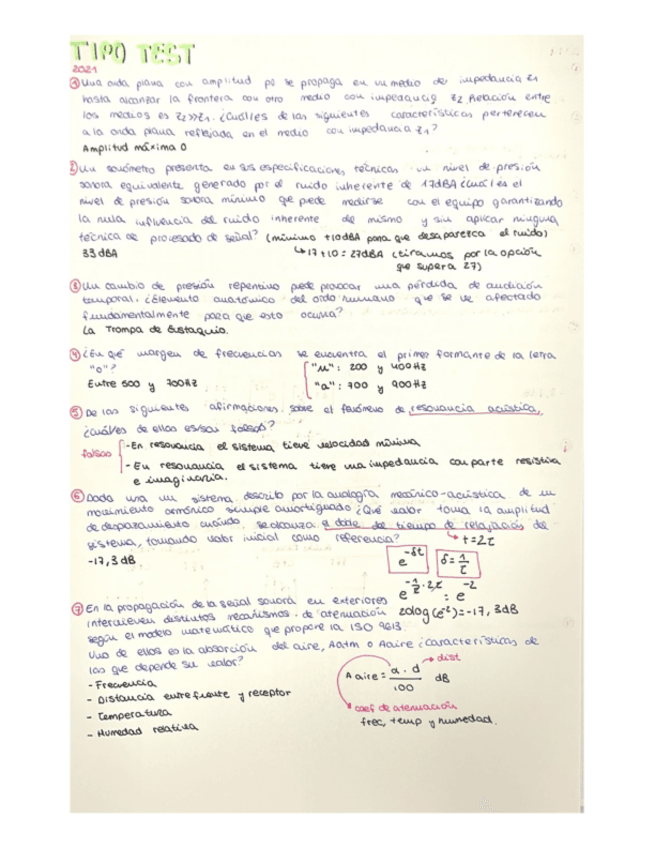 TIPO TEST
2021
① Una onda plana con amplitud p0 se propaga en un medio de impedancia z1
hasta alcanzar la frontera con otro medio con impedancia z2. Relación entre
los medios es z2>>z1. ¿Cuál/es de las siguientes características pertenecen
a la onda plana reflejada en el medio con impedancia z1?
Amplitud máxima 0
② Un sonómetro presenta en sus especificaciones técnicas un nivel de presión
sonora equivalente generado por el ruido inherente de 17dBA ¿cuál es el
nivel de presión sonora mínimo que puede medirse con el equipo garantizando
la nula influencia del ruido inherente del mismo y sin aplicar ninguna
técnica de procesado de señal? (mínimo +10dBA para que desaparezca el ruido)
33 dBA ↳ 17+10 = 27dBA (tiramos por la opción
que supera 27)
③ Un cambio de presión repentino puede provocar una pérdida de audición
temporal. ¿Elemento anatómico del oído humano que se ve afectado
fundamentalmente para que esto ocurra?
La Trompa de Eustaquio.
④ ¿En qué margen de frecuencias se encuentra el primer formante de la letra
"o"? "u": 200 y 400Hz
Entre 500 y 700Hz "a": 700 y 900Hz
⑤ De las siguientes afirmaciones sobre el fenómeno de resonancia acústica,
¿cuál/es de ellas es/son falsas?
falsas - En resonancia el sistema tiene velocidad mínima
- En resonancia el sistema tiene una impedancia con parte resistiva
e imaginaria.
⑥ Dada una un sistema descrito por la analogía mecánico-acústica de un
movimiento armónico simple amortiguado ¿Qué valor toma la amplitud
de desplazamiento cuando se alcanza el doble del tiempo de relajación del
sistema, tomando valor inicial como referencia? ↳ t=2τ
-17,3 dB e^-δt δ=1/τ
e^-1/τ·2τ = e^-2
20log(e^-2)=-17,3dB
⑦ En la propagación de la señal sonora en exteriores
intervienen distintos mecanismos de atenuación
según el modelo matemático que propone la ISO 9613.
Uno de ellos es la absorción del aire, Aatm o Aaire ¿características de
las que depende su valor?
- Frecuencia
- Distancia entre fuente y receptor
- Temperatura
- Humedad relativa
A aire = α·d/100 dB → dist
coef de atenuación
frec, temp y humedad.